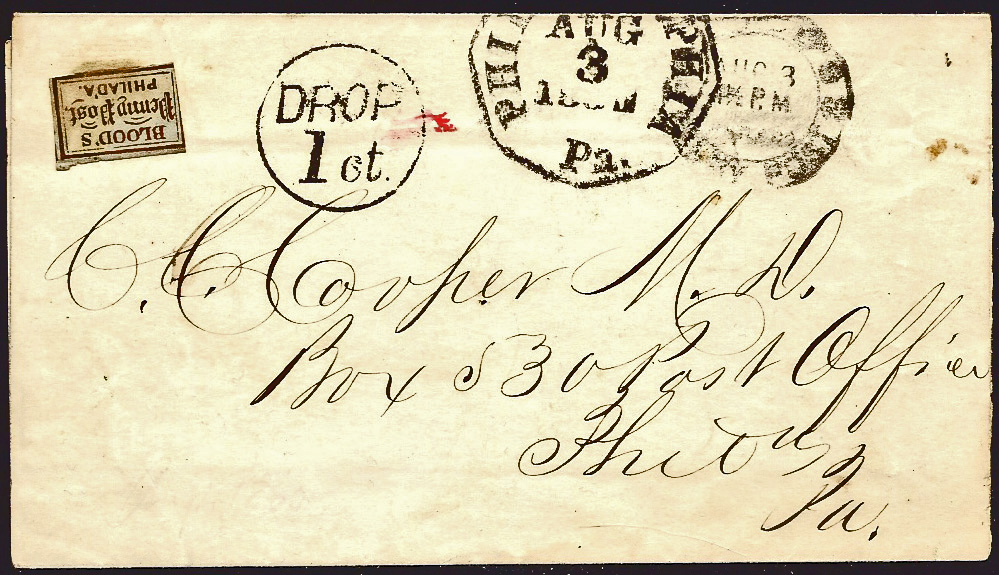 BLOOD'S
Penny Post,
PHILADA.
DROP
1 ct.
AUG
3
Pa.
C. C. Cooper M. D.
Box 530 Post Office
Phila
Pa.